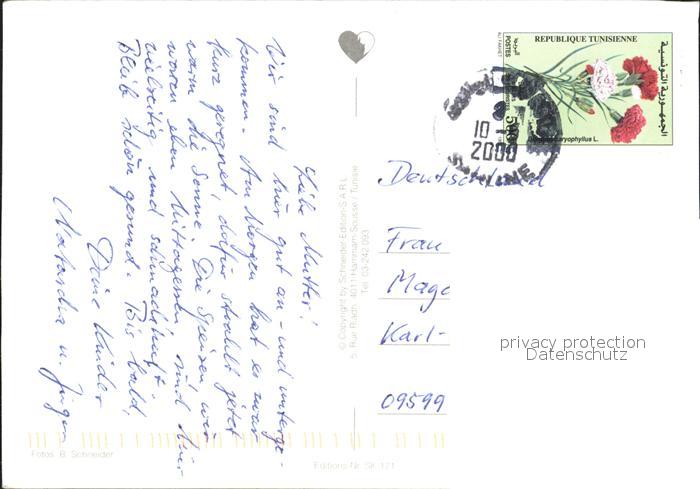 Liebe Mutter!
Wir sind hier gut an- und unterge-
kommen. Am Morgen hat es zwar
kurz geregnet, dafür strahlt jetzt
warm die Sonne. Die Speisen, wir
waren eben Mittagessen, sind hier
vielseitig und schmackhaft.
Bleib schön gesund. Bis bald,
Deine Kinder
Natascha u. Jürgen
Fotos B. Schneider
Editions Nr. SK 171
© Copyright by Schneider-Edition-S.A.R.L.
5, Rue Riadh, 4011-Hammam-Sousse / Tunisie
Tel. 03-242 093
REPUBLIQUE TUNISIENNE
الجمهورية التونسية
البريد
POSTES
500
caryophyllus L.
10
2000
Deutschland
Frau
Magd
Karl-
09599
privacy protection
Datenschutz